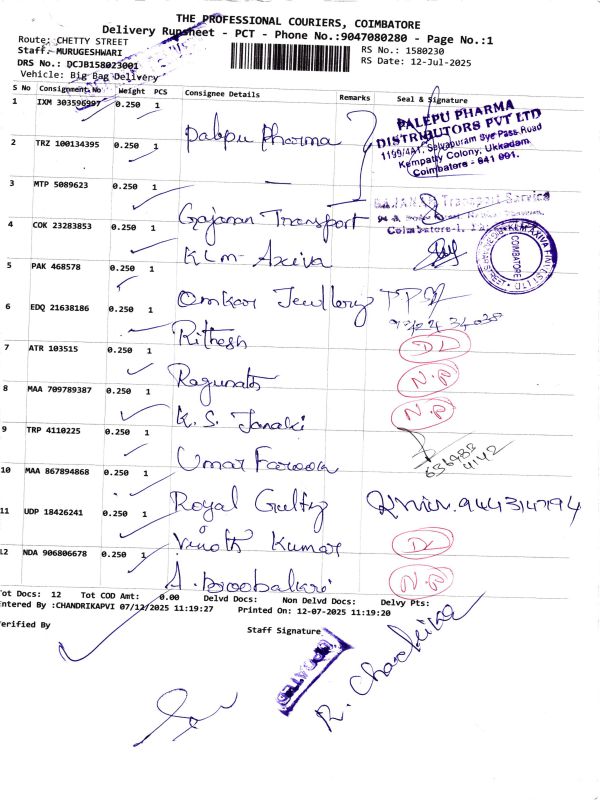 THE PROFESSIONAL COURIERS, COIMBATORE
Delivery Runsheet - PCT - Phone No.:9047080280 - Page No.:1
Route: CHETTY STREET
RS No.: 1580230
Staff: MURUGESHWARI
RS Date: 12-Jul-2025
DRS No.: DCJB158023001
Vehicle: Big Bag Delivery
S No Consignment No Weight PCS Consignee Details Remarks Seal & Signature
1 IXM 303596997 0.250 1 Palepu Pharma
PALEPU PHARMA
DISTRIBUTORS PVT LTD
1199/4A1, Selvapuram Bye Pass Road
Kempatty Colony, Ukkadam
Coimbatore - 641 001.
2 TRZ 100134395 0.250 1
3 MTP 5089623 0.250 1 Gajanan Transport
GAJANAN Transport Service
Coimbatore-1.
4 COK 23283853 0.250 1 KLM-Axiva
COIMBATORE
5 PAK 468578 0.250 1 Omkar Jewllery
6 EDQ 21638186 0.250 1 Rithesh DL
7 ATR 103515 0.250 1 Ragunath N.R
8 MAA 709789387 0.250 1 K.S. Janaki N.R
9 TRP 4110225 0.250 1 Umar Farook
10 MAA 867894868 0.250 1 Royal Gulfy 944314794
11 UDP 18426241 0.250 1 Vinoth Kumar DL
12 NDA 906806678 0.250 1 N.R
Tot Docs: 12 Tot COD Amt: 0.00 Delvd Docs: Non Delvd Docs: Delvy Pts:
Entered By :CHANDRIKAPVI 07/12/2025 11:19:27 Printed On: 12-07-2025 11:19:20
Verified By
Staff Signature
R. Chandrika